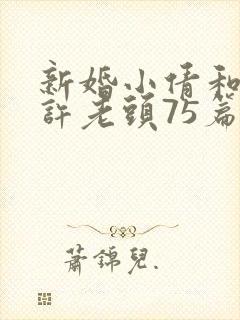 新婚小倩和
許老頭75篇
蕭錦兒.